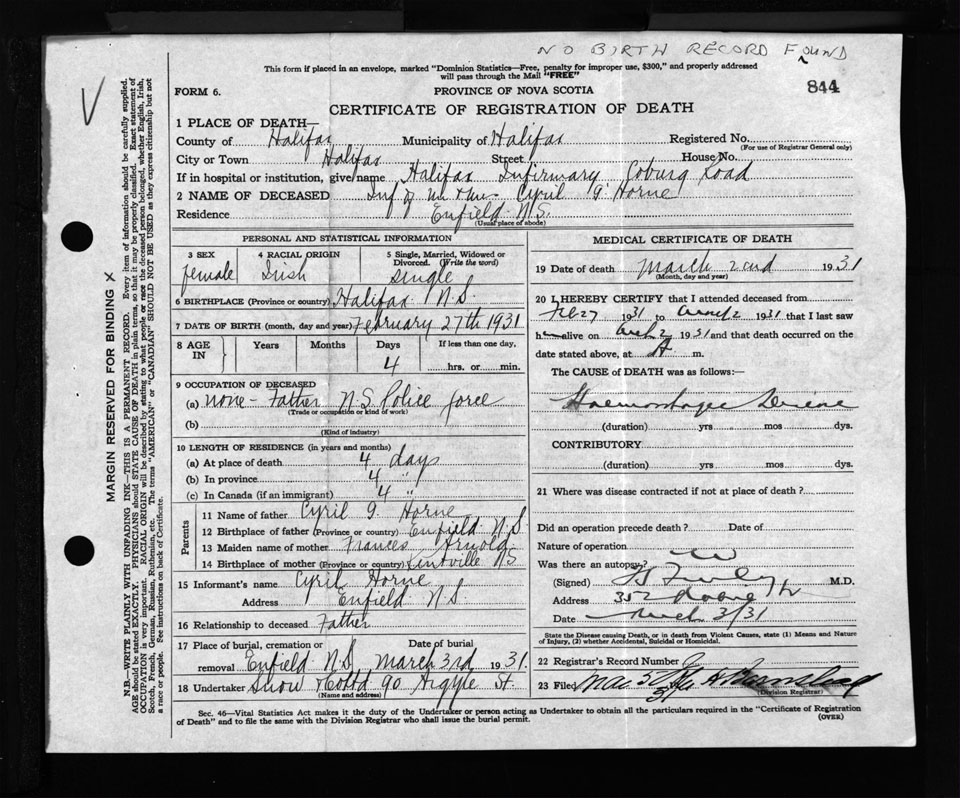 NO BIRTH RECORD FOUND
This form if placed in an envelope, marked "Dominion Statistics—Free, penalty for improper use, $300," and properly addressed
will pass through the Mail "FREE"
844
FORM 6.
PROVINCE OF NOVA SCOTIA
CERTIFICATE OF REGISTRATION OF DEATH
1 PLACE OF DEATH—
County of Halifax Municipality of Halifax Registered No.
(For use of Registrar General only)
City or Town Halifax Street House No.
If in hospital or institution, give name Halifax Infirmary Coburg Road
2 NAME OF DECEASED Inf of Mr & Mrs Cyril G Horne
Residence Enfield N.S.
(Usual place of abode)
PERSONAL AND STATISTICAL INFORMATION
3 SEX
female
4 RACIAL ORIGIN
Irish
5 Single, Married, Widowed or
Divorced. (Write the word)
single
6 BIRTHPLACE (Province or country) Halifax N.S.
7 DATE OF BIRTH (month, day and year) February 27th 1931
8 AGE
IN
Years
Months
Days
4
If less than one day,
hrs. or min.
9 OCCUPATION OF DECEASED
(a) none - Father N.S. Police force
(Trade or occupation or kind of work)
(b)
(Kind of industry)
10 LENGTH OF RESIDENCE (in years and months)
(a) At place of death 4 days
(b) In province 4 "
(c) In Canada (if an immigrant) 4 "
Parents
11 Name of father Cyril G. Horne
12 Birthplace of father (Province or country) Enfield N.S.
13 Maiden name of mother Frances Arnold
14 Birthplace of mother (Province or country) Kentville N.S.
15 Informant's name Cyril Horne
Address Enfield N.S.
16 Relationship to deceased Father
17 Place of burial, cremation or
removal Enfield N.S.
Date of burial
March 3rd 1931.
18 Undertaker Snow & Co Ltd 90 Argyle St.
(Name and address)
MEDICAL CERTIFICATE OF DEATH
19 Date of death March 2nd 1931
(Month, day and year)
20 I HEREBY CERTIFY that I attended deceased from
Feb 27 1931 to March 2 1931 that I last saw
h alive on March 2 1931 and that death occurred on the
date stated above, at A m.
The CAUSE of DEATH was as follows:—
Haemorrhagic
(duration) yrs mos dys.
CONTRIBUTORY
(duration) yrs mos dys.
21 Where was disease contracted if not at place of death?
Did an operation precede death? Date of
Nature of operation
Was there an autopsy? no
(Signed) M.D.
Address 352
Date March 3/31
State the Disease causing Death, or in death from Violent Causes, state (1) Means and Nature
of Injury, (2) whether Accidental, Suicidal or Homicidal.
22 Registrar's Record Number
23 Filed Mar 5
(Division Registrar)
Sec. 46—Vital Statistics Act makes it the duty of the Undertaker or person acting as Undertaker to obtain all the particulars required in the "Certificate of Registration
of Death" and to file the same with the Division Registrar who shall issue the burial permit.
(OVER)
MARGIN RESERVED FOR BINDING X
N.B.—WRITE PLAINLY WITH UNFADING INK—THIS IS A PERMANENT RECORD. Every item of information should be carefully supplied.
AGE should be stated EXACTLY. PHYSICIANS should STATE CAUSE OF DEATH in plain terms, so that it may be properly classified. Exact statement of
OCCUPATION is very important. RACIAL ORIGIN will be described by stating to what people or race the deceased person belonged, whether English, Irish,
Scotch, French, German, Russian, Ruthenian, etc. The terms "AMERICAN" or "CANADIAN" SHOULD NOT BE USED as they express citizenship but not
a race or people. See instructions on back of Certificate.